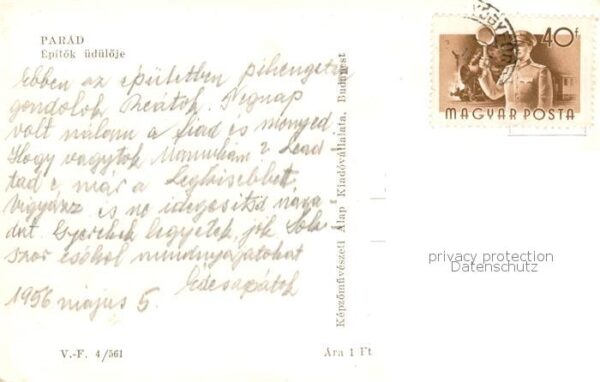 PARÁD
Építők üdülője
Ebben az épületben pihengetve
gondolok Reátok. Tegnap
volt nálam a fiad és menyed.
Hogy vagytok Mamukám? Lead
tad e már a Legkisebbet
Vigyázz és ne idegesítsd
Gyerekek legyetek jók Sok
szor csókol mindnyájatokat
Édesapátok
1956 május 5.
V.-F. 4/561
Ára 1 Ft
Képzőművészeti Alap Kiadóvállalata, Budapest
40f
MAGYAR POSTA
privacy protection
Datenschutz